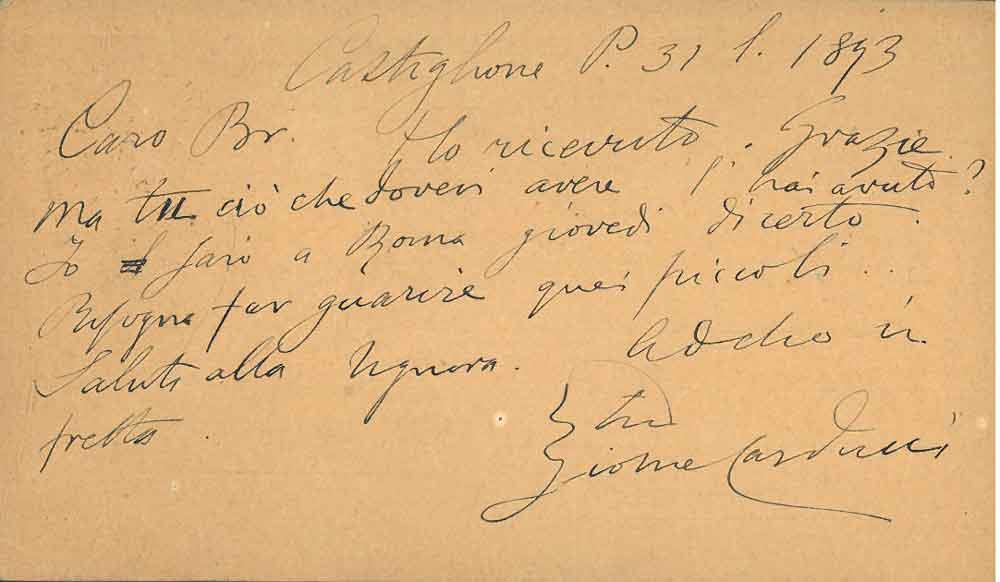 Castiglione P. 31 1. 1893
Caro Br. Ho ricevuto. Grazie.
Ma tu ciò che dovevi avere l'hai avuto?
Io sarò a Roma giovedì di certo.
Bisogna far guarire quei piccoli..
Saluti alla signora. Addio in
fretta.
tuo
Giosue Carducci